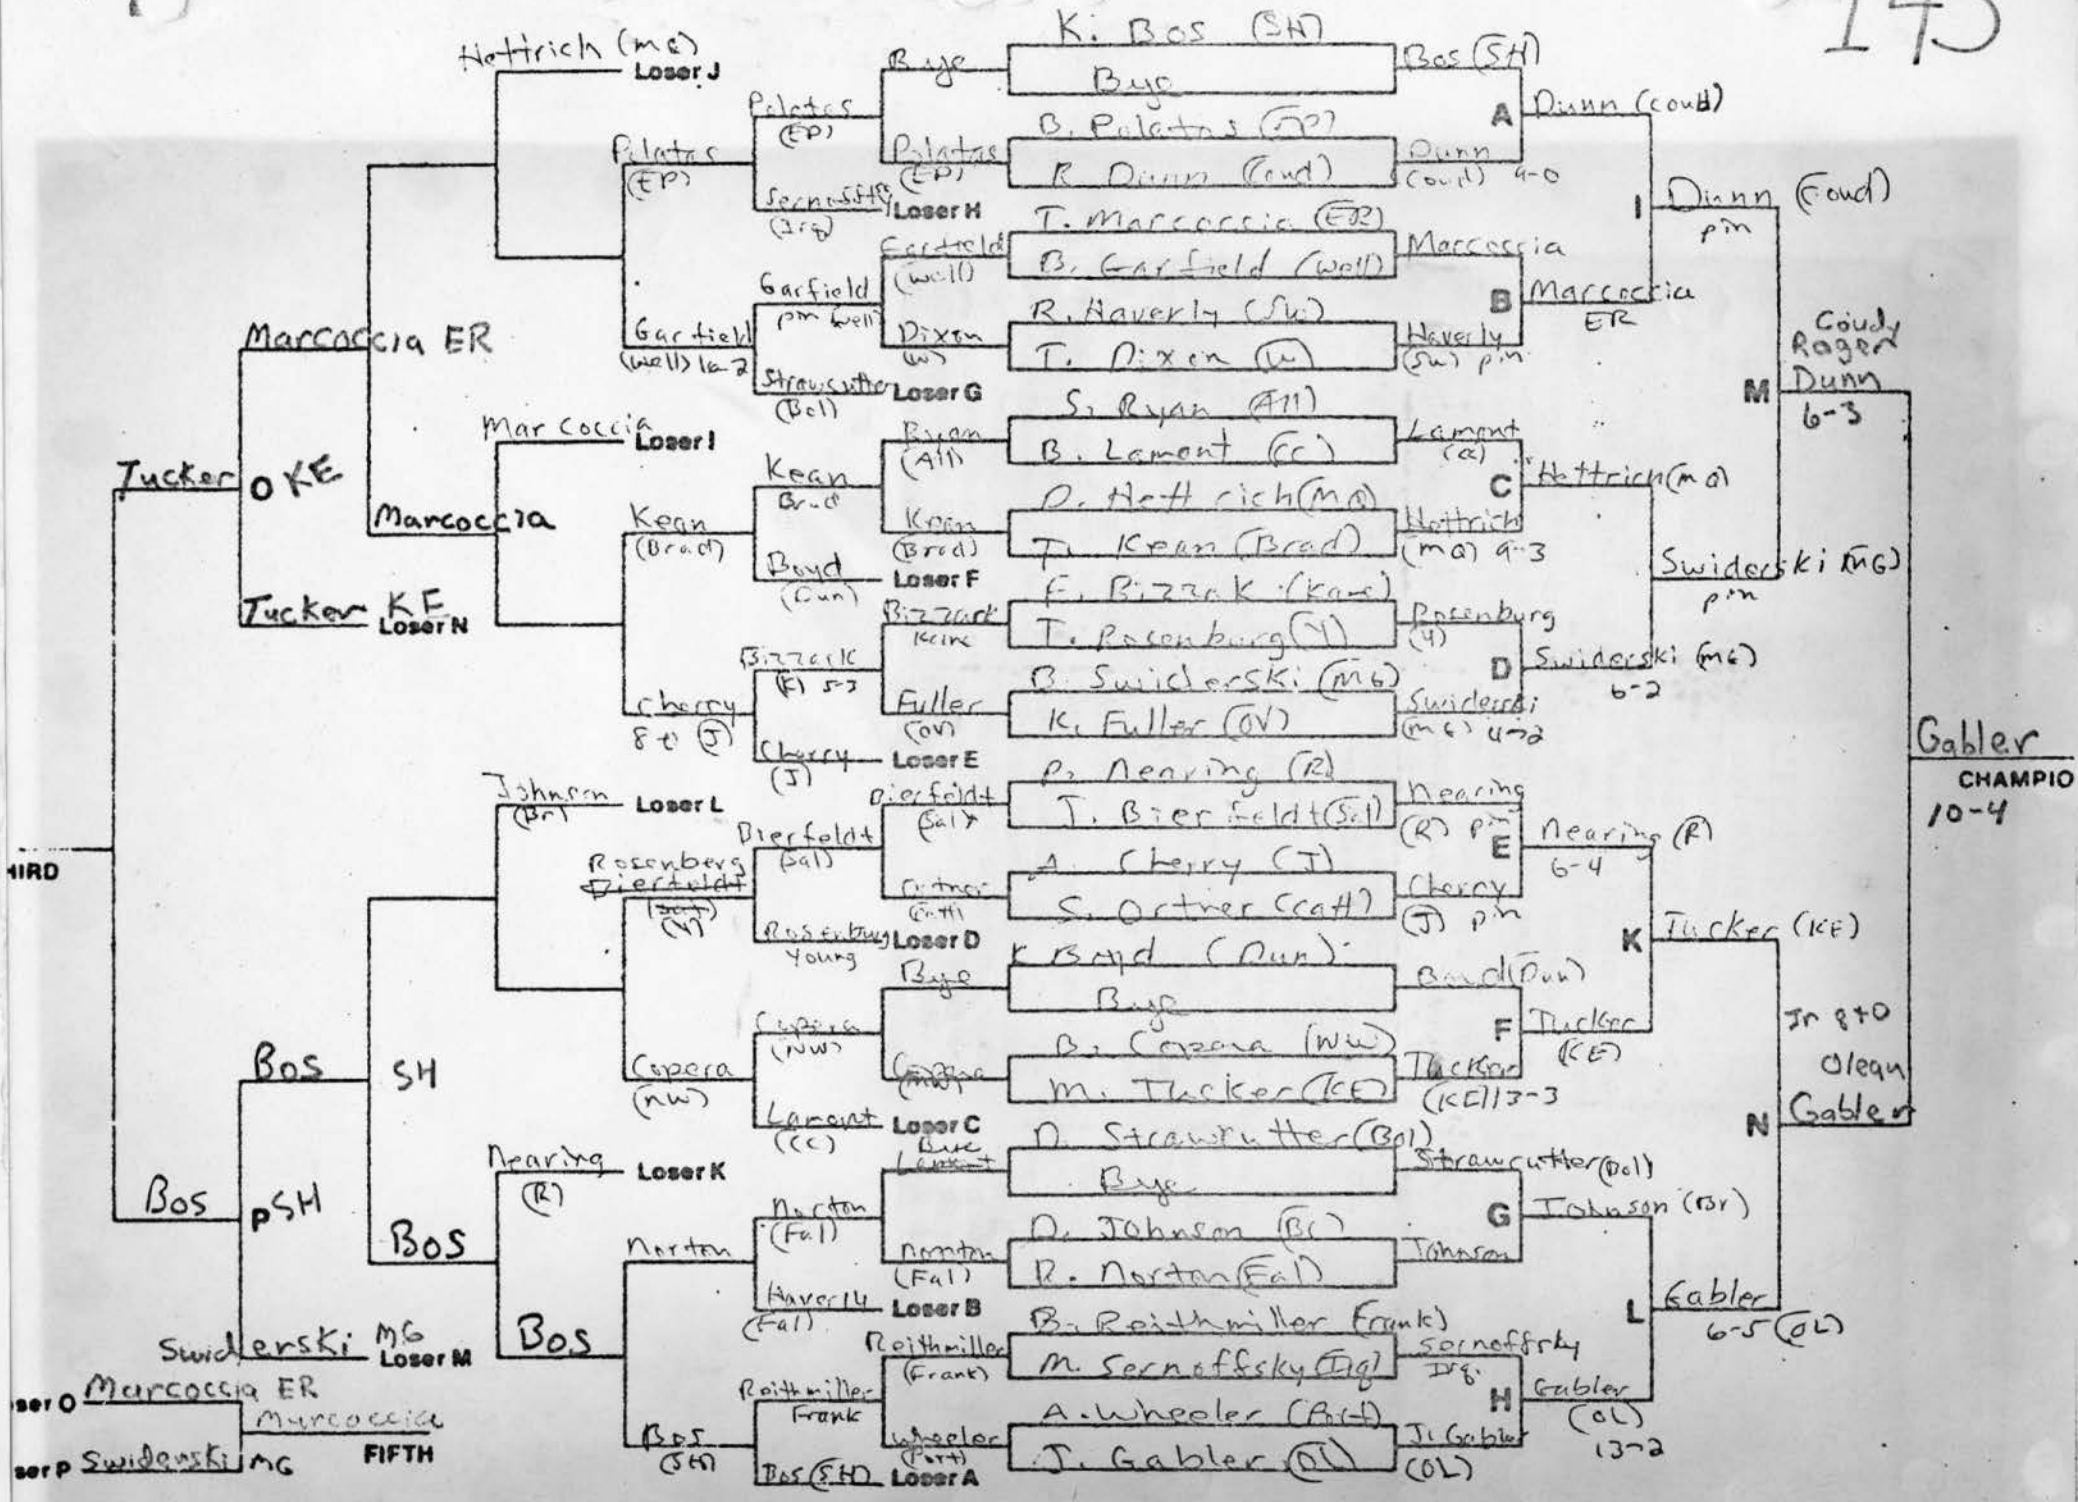 145
K. Bos (SH)
Bye
B. Polatas (EP)
R. Dunn (Coud)
T. Marcoccia (ER)
B. Garfield (Well)
R. Haverly (SW)
T. Dixon (W)
S. Ryan (All)
B. Lamont (CC)
D. Hettrich (MQ)
T. Kean (Brad)
F. Bizzak (Kane)
T. Rosenburg (Y)
B. Swiderski (MG)
K. Fuller (OV)
P. Nearing (R)
T. Bierfeldt (Sal)
A. Cherry (J)
S. Ortner (Catt)
K Boyd (Dun)
Bye
B. Copera (NW)
M. Tucker (KE)
D. Strawcutter (Bol)
Bye
D. Johnson (Br)
R. Norton (Fal)
B. Reithmiller (Frank)
M. Sernoffsky (Irq)
A. Wheeler (Port)
J. Gabler (OL)
Bos (SH)
Dunn
(Coud) 9-0
Marcoccia
Haverly
(SW) pin
Lamont
(CC)
Hettrich
(MQ) 9-3
Rosenburg
(Y)
Swiderski
(MG) 4-2
Nearing
(R) pin
Cherry
(J) pin
Boyd (Dun)
Tucker
(KE) 13-3
Strawcutter (Bol)
Johnson
Sernoffsky
Irq.
J. Gabler
(OL)
A
Dunn (Coud)
B
Marcoccia
ER
C
Hettrich (MQ)
D
Swiderski (MG)
6-2
E
Nearing (R)
6-4
F
Tucker
(KE)
G
Johnson (Br)
H
Gabler
(OL)
13-2
I
Dunn (Coud)
pin
Swiderski (MG)
pin
K
Tucker (KE)
L
Gabler
6-5 (OL)
M
Coudy
Roger
Dunn
6-3
N
Jr 8+0
Olean
Gabler
Gabler
CHAMPIO
10-4
Bye
Polatas
(EP)
Garfield
(Well)
Dixon
(W)
Ryan
(All)
Kean
(Brad)
Bizzark
Kane
Fuller
(OV)
Bierfeldt
(Sal)
Ortner
(Catt)
Bye
Copera
(NW)
Bye
Lamont
Norton
(Fal)
Reithmiller
(Frank)
Wheeler
(Port)
Polatas
(EP)
Sernoffsky
(Irq)
Loser H
Garfield
pin Well
Strawcutter
(Bol)
Loser G
Kean
Brad
Boyd
(Dun)
Loser F
Bizzark
(K) 5-3
Cherry
(J)
Loser E
Bierfeldt
(Sal)
Rosenburg
Young
Loser D
Copera
(NW)
Lamont
(CC)
Loser C
Norton
(Fal)
Haverly
(Fal)
Loser B
Reithmiller
Frank
Bos (SH)
Loser A
Polatas
(EP)
Garfield
(Well) 16-2
Kean
(Brad)
Cherry
8-0 (J)
Rosenberg
Bierfeldt
(Sal)
(Y)
Copera
(NW)
Norton
Bos
(SH)
Hettrich (MQ)
Loser J
Marcoccia
Loser I
Johnson
(Br)
Loser L
Nearing
(R)
Loser K
Bos
Marcoccia
Bos
Marcoccia ER
Tucker KE
Loser N
Bos SH
Swiderski MG
Loser M
Tucker
O KE
Bos
P SH
HIRD
ser O Marcoccia ER
ser P Swiderski MG
Marcoccia
FIFTH